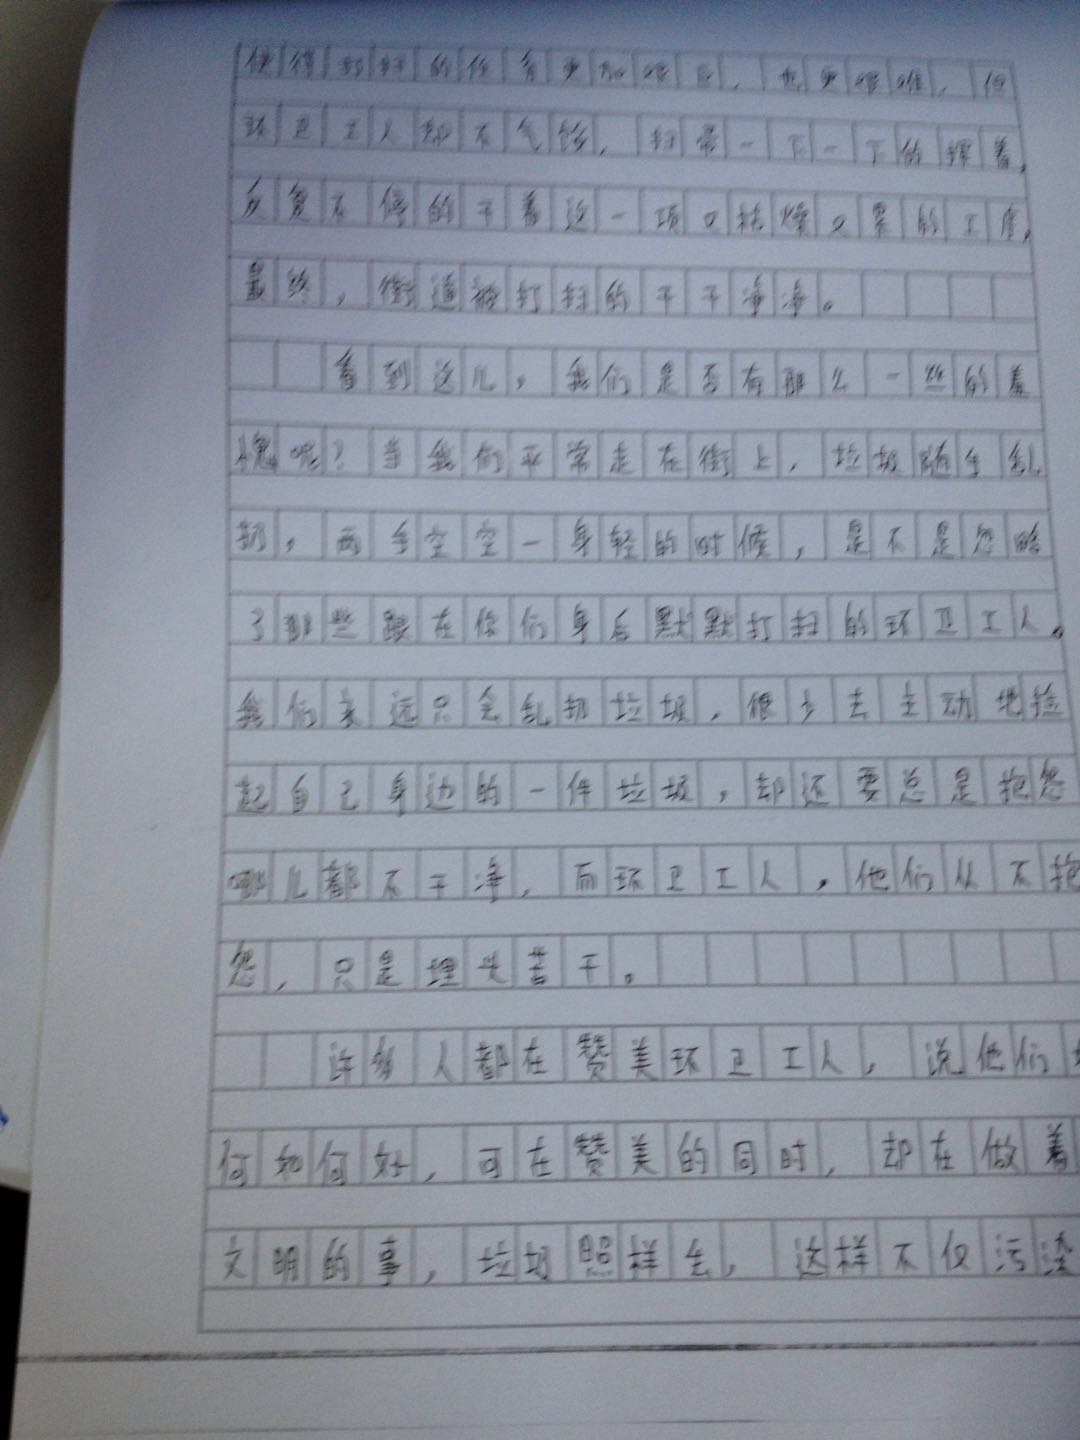 使得打扫的任务更加艰巨，也更艰难，但
环卫工人却不气馁，扫帚一下一下的挥着，
反复不停的干着这一项又枯燥又累的工作，
最终，街道被打扫的干干净净。
看到这儿，我们是否有那么一丝的羞
愧呢？当我们平常走在街上，垃圾随手乱
扔，两手空空一身轻的时候，是不是忽略
了那些跟在你们身后默默打扫的环卫工人。
我们永远只会乱扔垃圾，很少去主动地捡
起自己身边的一件垃圾，却还要总是抱怨
哪儿都不干净，而环卫工人，他们从不抱
怨，只是埋头苦干。
许多人都在赞美环卫工人，说他们
何如何好，可在赞美的同时，却在做着
文明的事，垃圾照样生，这样不仅污染